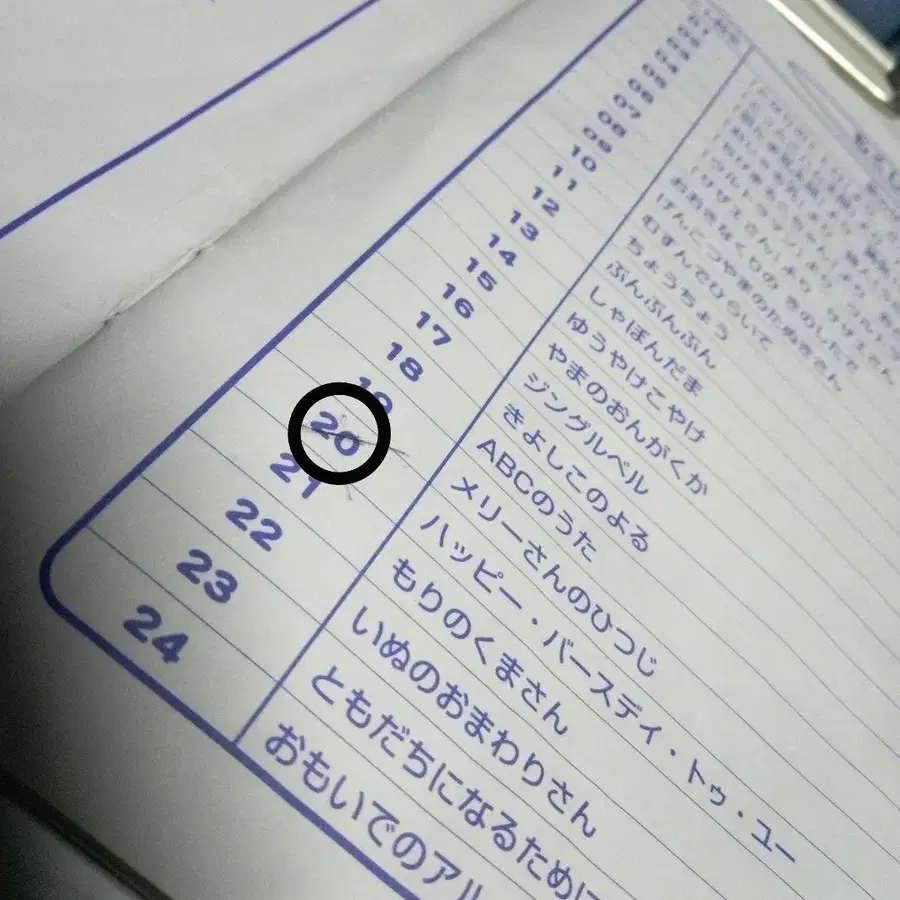 07
08 おおきなくりの きのしたで
09 げんこつやまのたぬきさん
10 むすんでひらいて
11 ちょうちょう
12 ぶんぶんぶん
13 しゃぼんだま
14 ゆうやけこやけ
15 やまのおんがくか
16 ジングルベル
17 きよしこのよる
18 ABCのうた
19 メリーさんのひつじ
20 ハッピー・バースディ・トゥ・ユー
21 もりのくまさん
22 いぬのおまわりさん
23 ともだちになるために
24 おもいでのアル